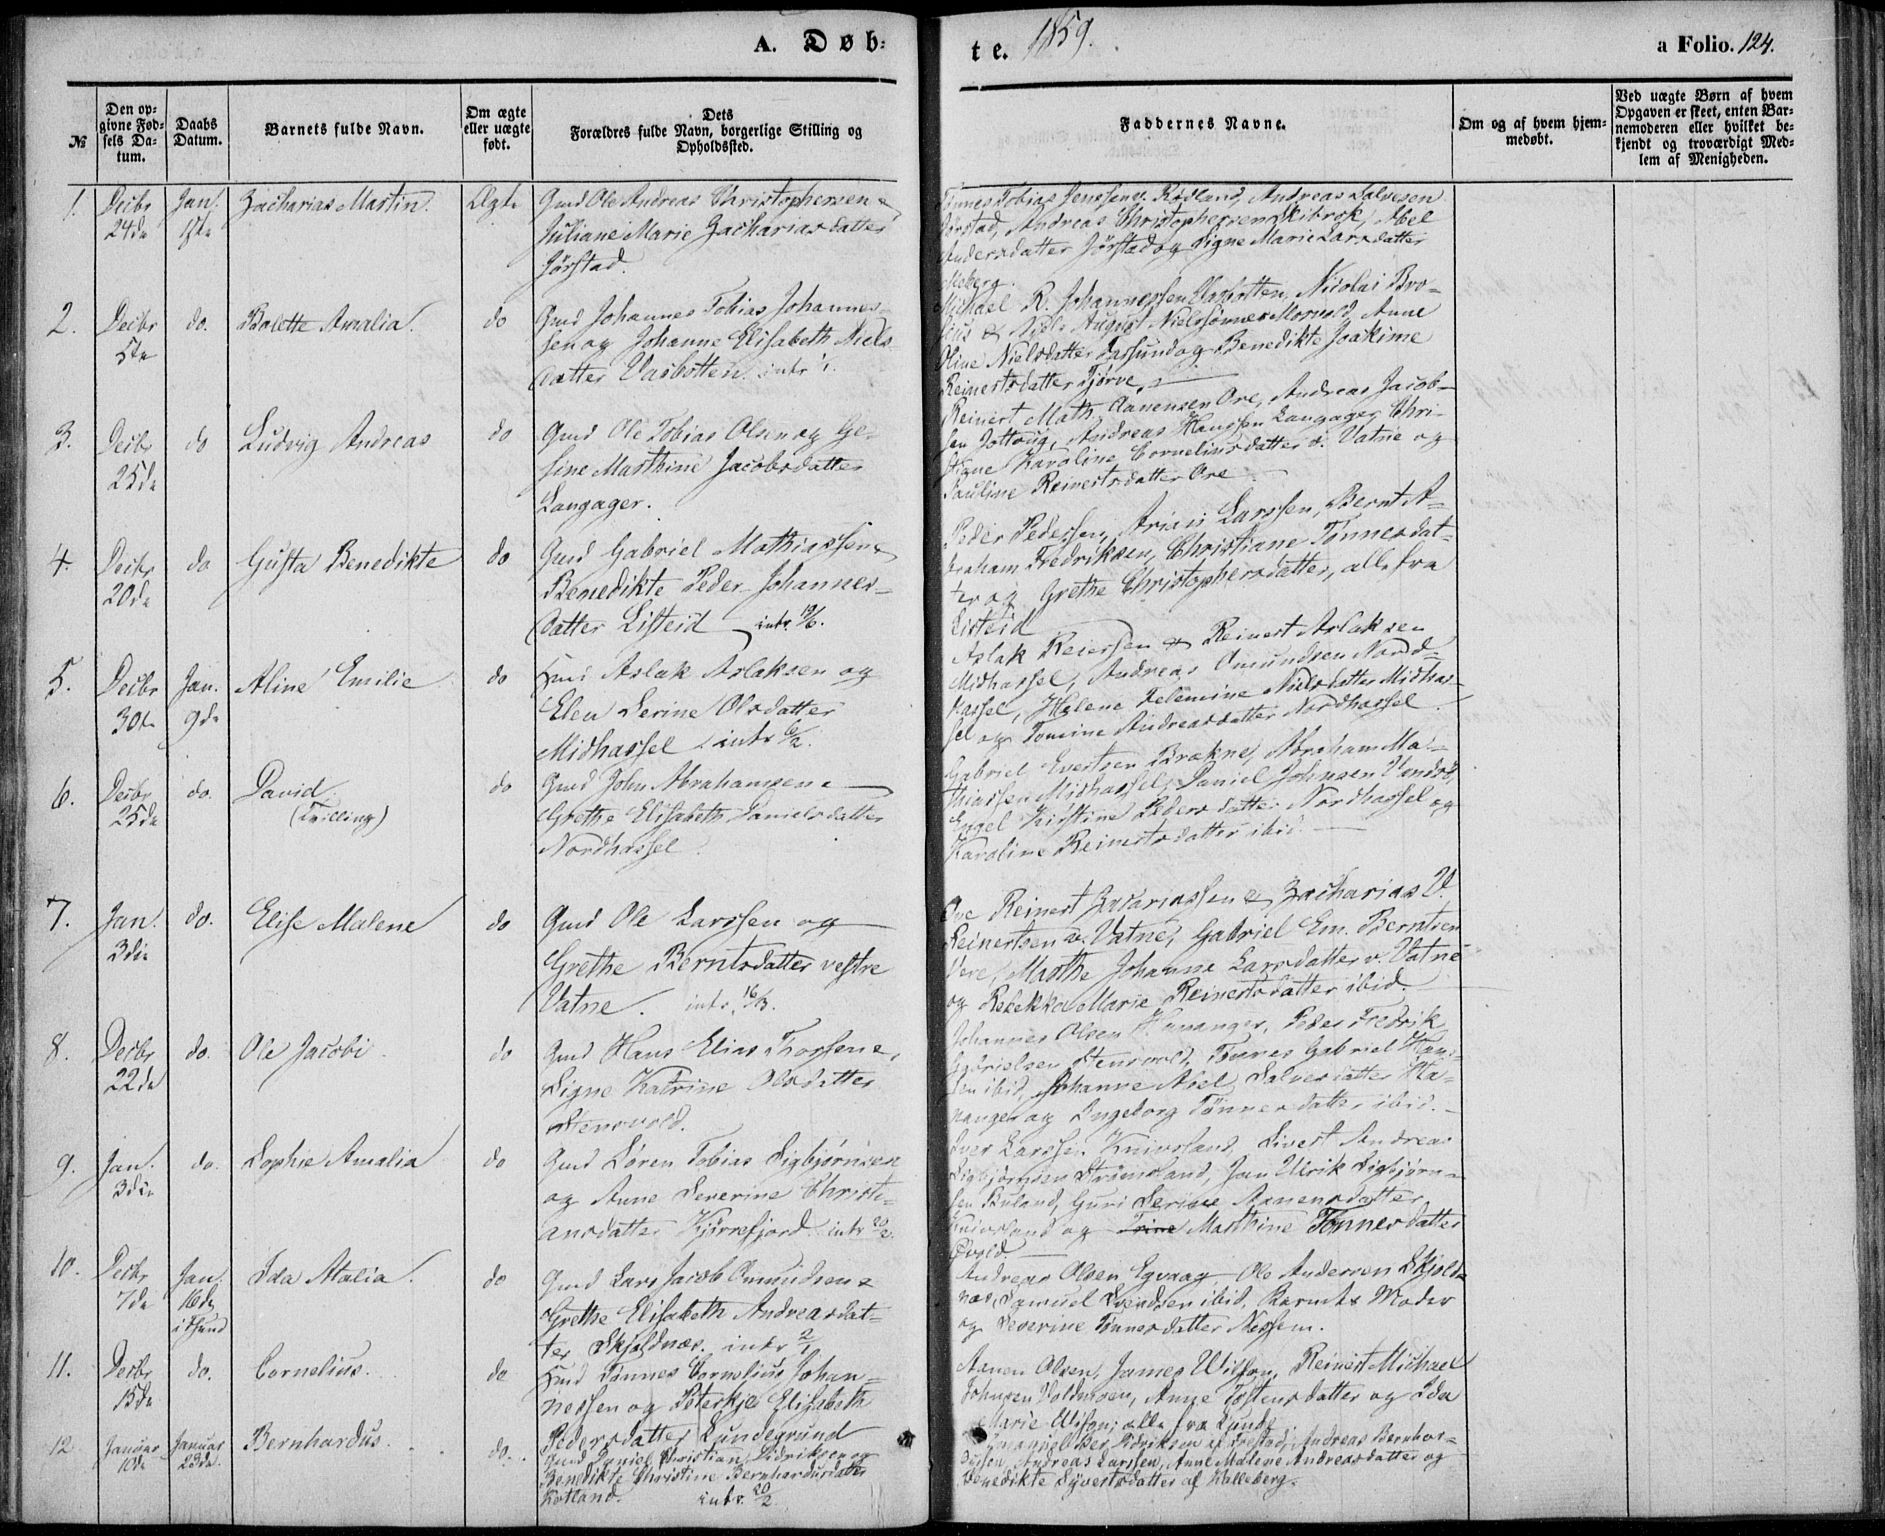 A. Døb-
te. 1859.
a Folio. 124.
№
Den op-
givne Fød-
sels Da-
tum.
Daabs
Datum.
Barnets fulde Navn.
Om ægte
eller uægte
født.
Dets
Forældres fulde Navn, borgerlige Stilling og
Opholdssted.
Faddernes Navne.
Om og af hvem hjem-
medøbt.
Ved uægte Børn af hvem
Opgaven er skeet, enten Bar-
nemoderen eller hvilket be-
kjendt og troværdigt Med-
lem af Menigheden.
1. Decbr 24de Jan. 1ste Zacharias Martin. Ægte
Gmd Ole Andreas Christophersen &
Juliane Marie Zachariasdatter
Jørstad.
Tønnes Tobias Jenssen Rødland, Andreas Salvesen
Jørstad, Andreas Christophersen Skibrok, Abel
Andersdatter Jørstad og Signe Marie Larsdatter
2. Decbr 5te do. Bolette Amalia. do
Gmd Johannes Tobias Johannes-
sen og Johanne Elisabeth Niels-
datter Vasbotten. intr
Michael R. Johannessen Vasbotten, Nicolai Bro-
& Niels August Nielssønner Anne
Oline Nielsdatter og Benedikte Joakime
Reinertsdatter Tjørve.
3. Decbr 25de do Ludvig Andreas do
Gmd Ole Tobias Olsen og Ge-
sine Marthine Jacobsdatter
Langager.
Reinert Math. Aanensen Ore, Andreas Jacob-
sen Andreas Hanssen Langager, Chri-
stiane Karoline Corneliusdatter ø. Vatne og
Pauline Reinertsdatter Ore
4. Decbr 20de do Gusta Benedikte do
Gmd Gabriel Mathiassen &
Benedikte Peder Johannes-
datter Listeid intr. 19/6.
Peder Pedersen, Larssen, Bernt A-
braham Fredriksen, Christiane Tønnesdat-
ter og Grethe Christophersdatter, alle fra
Listeid
5. Decbr 30te Jan. 9de Aline Emilie do
Gmd Aslak Aslaksen og
Elen Serine Olsdatter
Midhassel. intr 6/2.
Aslak Reiersen & Reinert Aslaksen
Midhassel, Andreas Omundsen Nord-
hassel, Helene Telemine Nielsdatter Midhas-
sel og Tomine Andreasdatter Nordhassel.
6. Decbr 25de do. David. (Tvilling) do
Gmd John Abrahamsen &
Grethe Elisabeth Danielsdatter
Nordhassel.
Gabriel Evertsen Brækne, Abraham Ma-
thiassen Midhassel, Daniel Johnsen
Engel Kirstine Pedersdatter Nordhassel og
Karoline Reinertsdatter ibid.
7. Jan. 3die do. Elise Malene do
Gmd Ole Larssen og
Grethe Berntsdatter vestre
Vatne. intr. 16/3.
Ove Reinert Zakariassen & Zacharias U.
Reinertsen v. Vatne, Gabriel Em. Berntsen
Vere, Marthe Johanne Larsdatter v. Vatne
og Rebekka Marie Reinertsdatter ibid.
8. Decbr 22de do. Ole Jacobi. do
Gmd Hans Elias Thorssen &
Signe Katrine Olsdatter
Stensvold.
Johannes Olsen Hananger, Peder Fredrik
Gabrielsen Stensvold, Tønnes Gabriel Han-
sen ibid, Johanne Abel Salvesdatter Ha-
nanger og Ingeborg Tønnesdatter ibid.
9. Jan. 3die do. Sophie Amalia do
Gmd Søren Tobias Sigbjørnsen
og Anne Severine Christi-
ansdatter Kjørrefjord. intr 20/2.
Iver Larssen Knivsland, Sivert Andreas
Sigbjørnsen Strømsland, Jan Ulrik Sigbjørn-
sen Buland, Guri Serine Aanensdatter
Knivsland og Trine Marthine Tønnesdatter
10. Decbr 7de Jan. 16de i Sund Ida Atalia. do
Gmd Lars Jacob Omundsen &
Grethe Elisabeth Andreasdat-
ter Skjoldnæs. intr 2/1
Andreas Olsen Egvaag, Ole Andersen Skjold-
næs, Samuel Svendsen ibid, Barnets Moder
og Severine Tønnesdatter Næssem.
11. Decbr 15de do. Cornelius. do
Gmd Tønnes Cornelius Johan-
nessen og Peterkje Elisabeth
Pedersdatter Lundegrund
Aanen Olsen, James Wilson, Reinert Michael
Johnsen Anne Tostensdatter og Ida
Marie Wilson, alle fra Lunde
12. Januar 10de Januar 23de Bernhardus. do.
Gmd Daniel Christian Didriksen og
Benedikte Christine Bernhardusdatter
Kotland. intr. 20/2
Emanuel Ber. Didriksen af Andreas Bernhar-
dussen, Andreas Larssen, Anne Malene Andreasdatter og
Benedikte Syvertsdatter af Kalleberg.